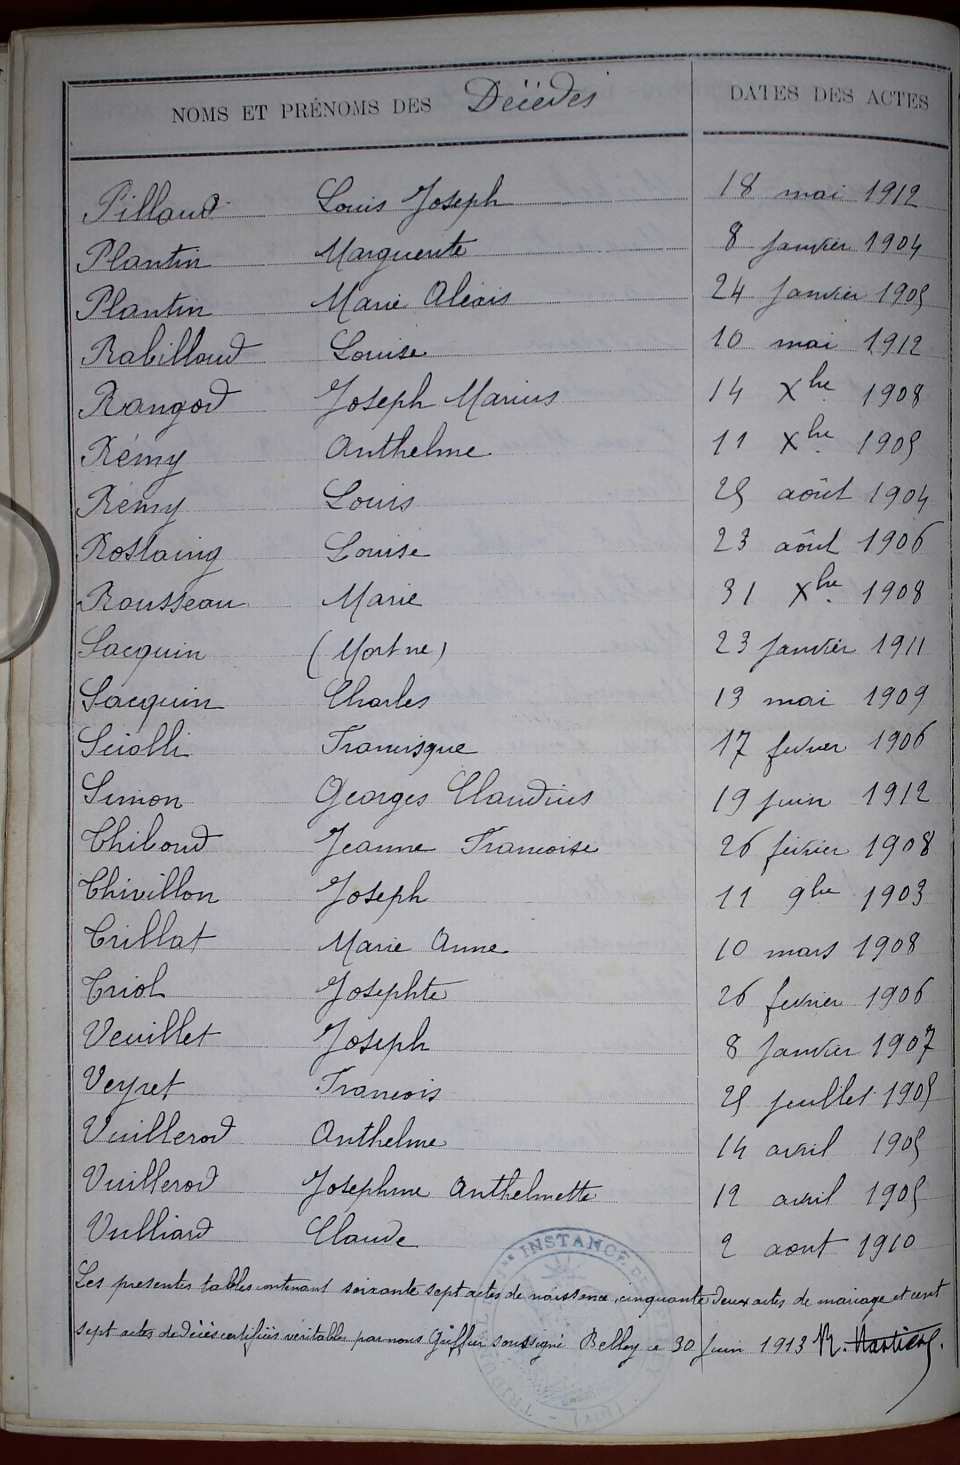 NOMS ET PRÉNOMS DES Décédés DATES DES ACTES
Pillaud Louis Joseph 18 mai 1912
Plantin Marguerite 8 janvier 1904
Plantin Marie Alexis 24 janvier 1905
Rabilloud Louise 10 mai 1912
Rangod Joseph Marius 14 Xbre 1908
Rémy Anthelme 11 Xbre 1905
Rémy Louis 25 août 1904
Rostaing Louise 23 août 1906
Rousseau Marie 31 Xbre 1908
Sacquin (Mort né) 23 janvier 1911
Sacquin Charles 13 mai 1909
Sciolli Francisque 17 fevrier 1906
Simon Georges Claudius 19 juin 1912
Thiboud Jeanne Francoise 26 février 1908
Thivillon Joseph 11 9bre 1903
Trillat Marie Anne 10 mars 1908
Triol Josephte 26 fevrier 1906
Veuillet Joseph 8 janvier 1907
Veyret Francois 25 juillet 1905
Vuillerod Anthelme 14 avril 1905
Vuillerod Josephine Anthelmette 12 avril 1905
Vulliard Claude 2 aout 1910
Les presentes tables contenant soixante sept actes de naissance, cinquante deux actes de mariage et cent
sept actes de décès certifiées véritables par nous Greffier soussigné Belley le 30 Juin 1913
INSTANCE